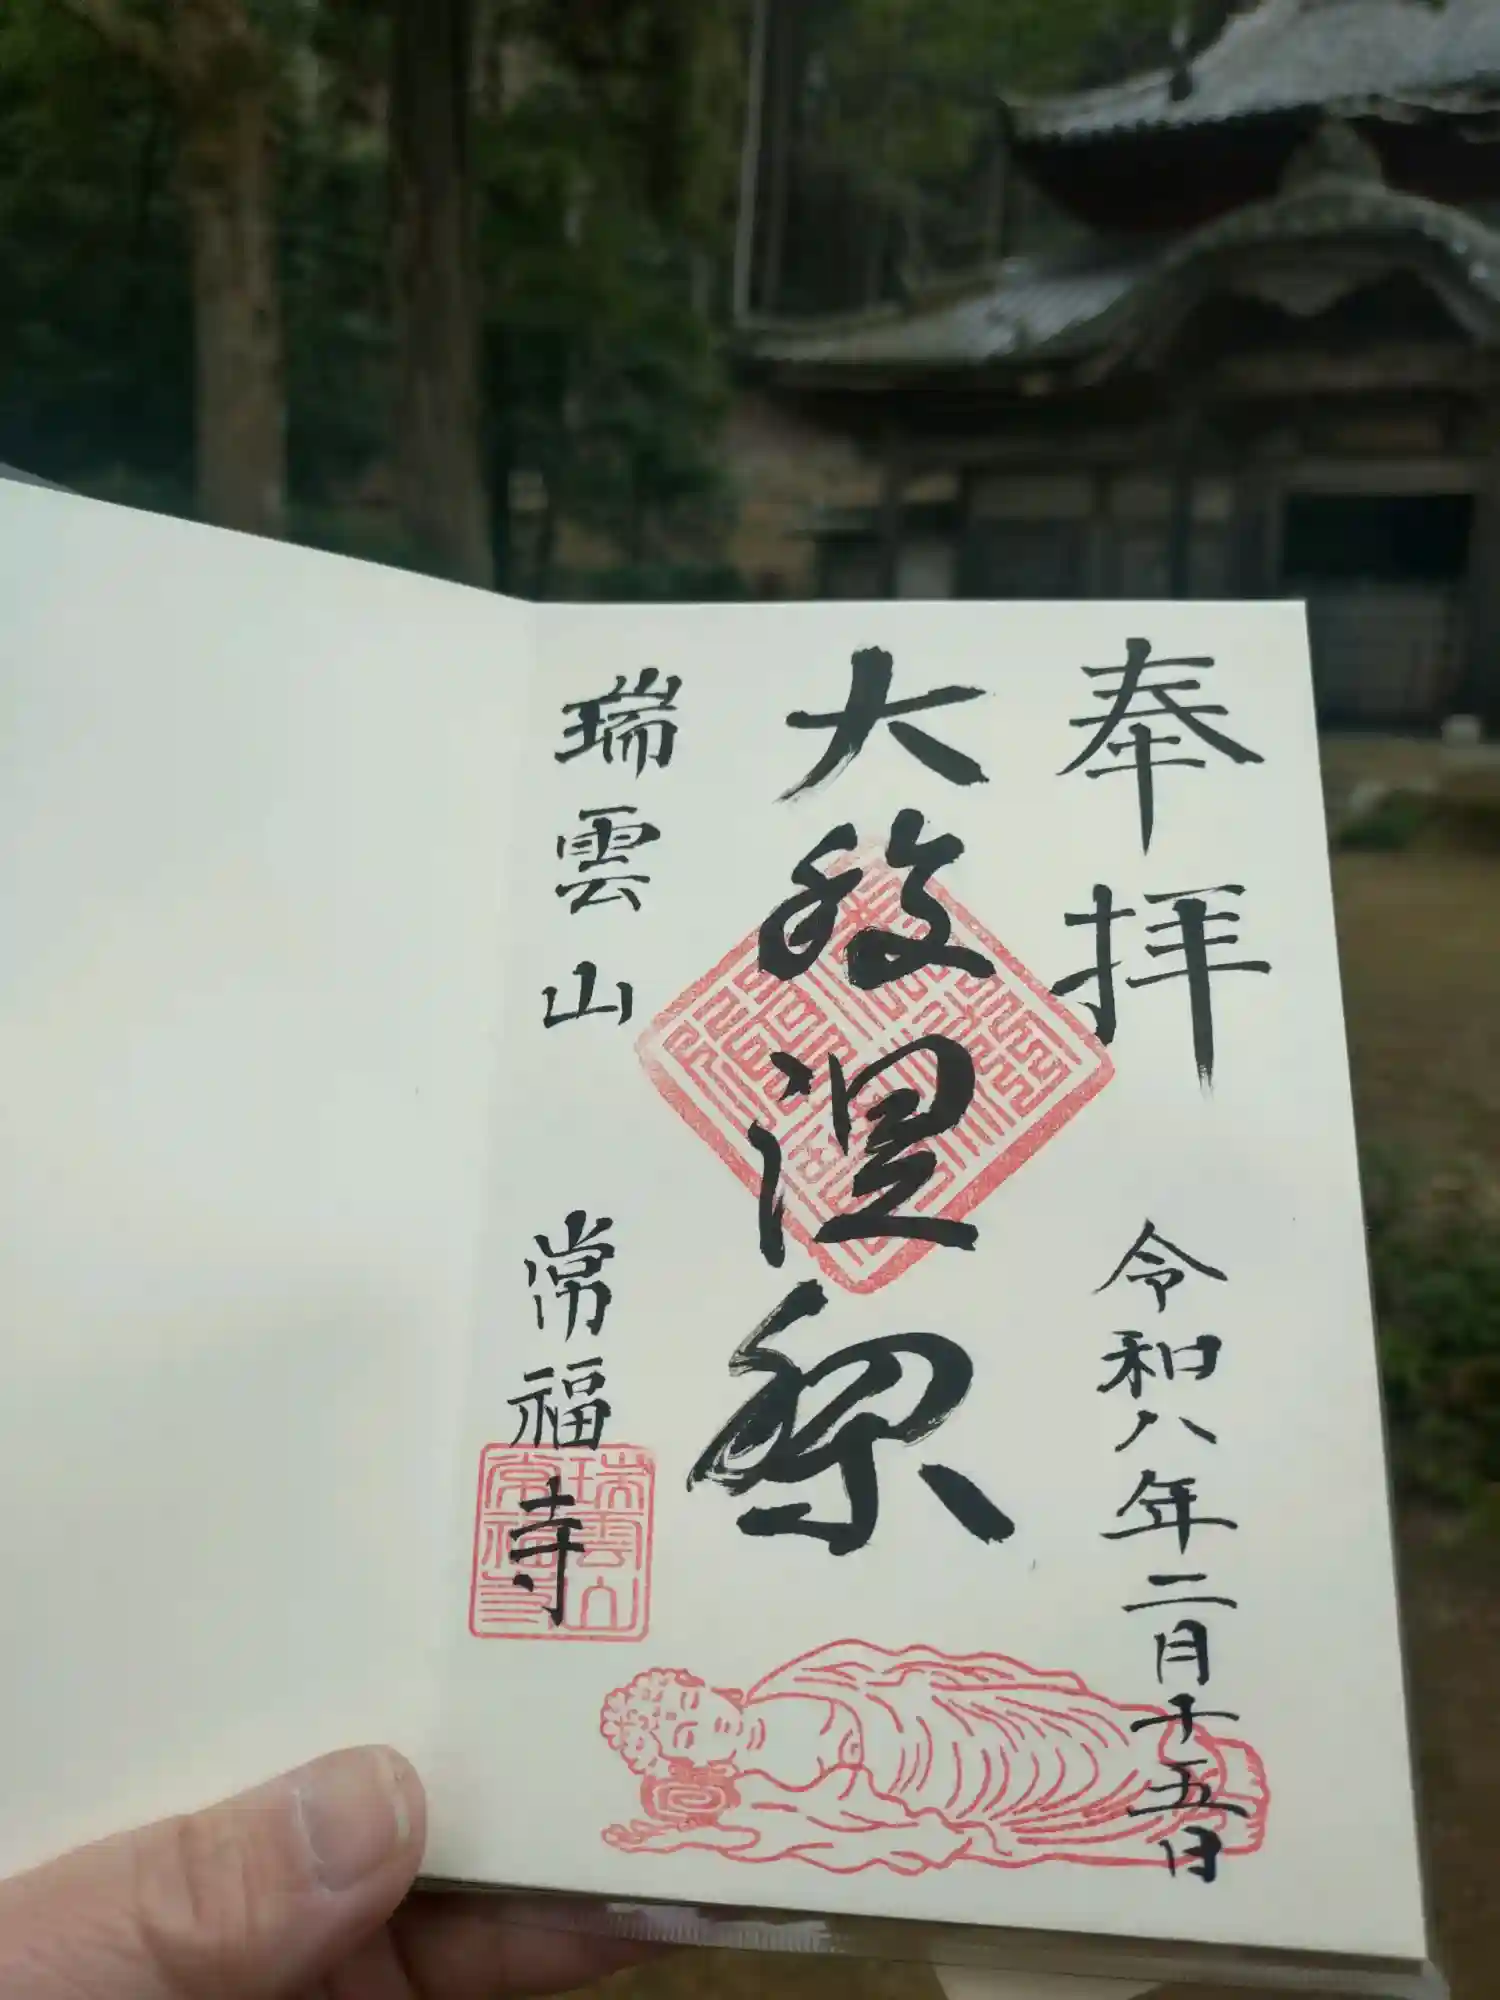 奉拝
令和八年二月十五日
大般涅槃
瑞雲山
常福寺
瑞雲山
常福寺